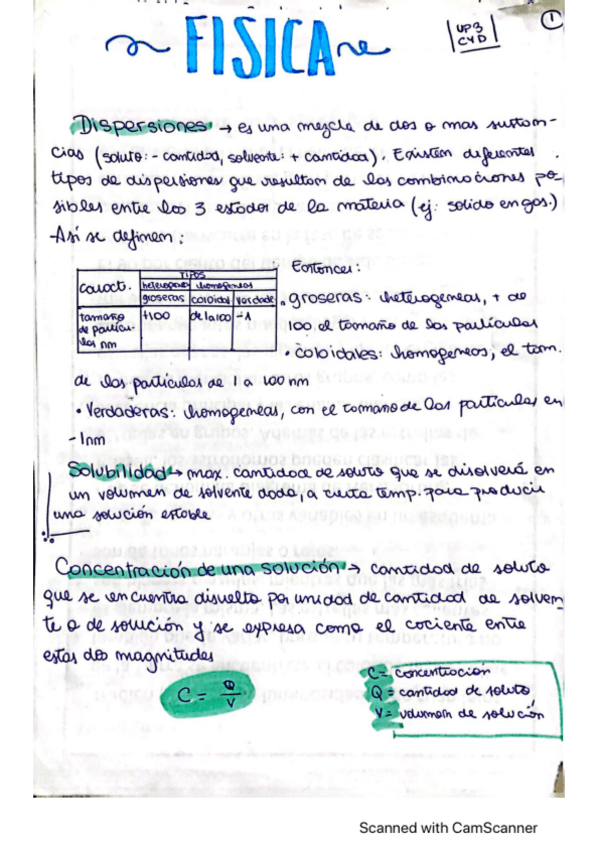 FISICA
UP3
CyD
1
Dispersiones → es una mezcla de dos o mas sustan-
cias (soluto: - cantidad, solvente: + cantidad). Existen diferentes
tipos de dispersiones que resultan de las combinaciones po-
sibles entre los 3 estados de la materia (ej: solido en gas.)
Así se definen:
TIPOS
caract. heterogeneas homogeneas
groseras coloidal verdade
tamaño de particulas nm +100 de 1 a 100 -1
Entonces:
• groseras: heterogeneas, + de
100 el tamaño de las partículas
• coloidales: homogeneos, el tam.
de las partículas de 1 a 100 nm
• Verdaderas: homogeneas, con el tamaño de las partículas en
-1nm
Solubilidad → max. cantidad de soluto que se disolverá en
un volumen de solvente dado, a cierta temp. para producir
una solución estable
Concentración de una solución → cantidad de soluto
que se encuentra disuelto por unidad de cantidad de solven
te o de solución y se expresa como el cociente entre
estas dos magnitudes
C = Q/V
C = concentración
Q = cantidad de soluto
V = volumen de solución
Scanned with CamScanner